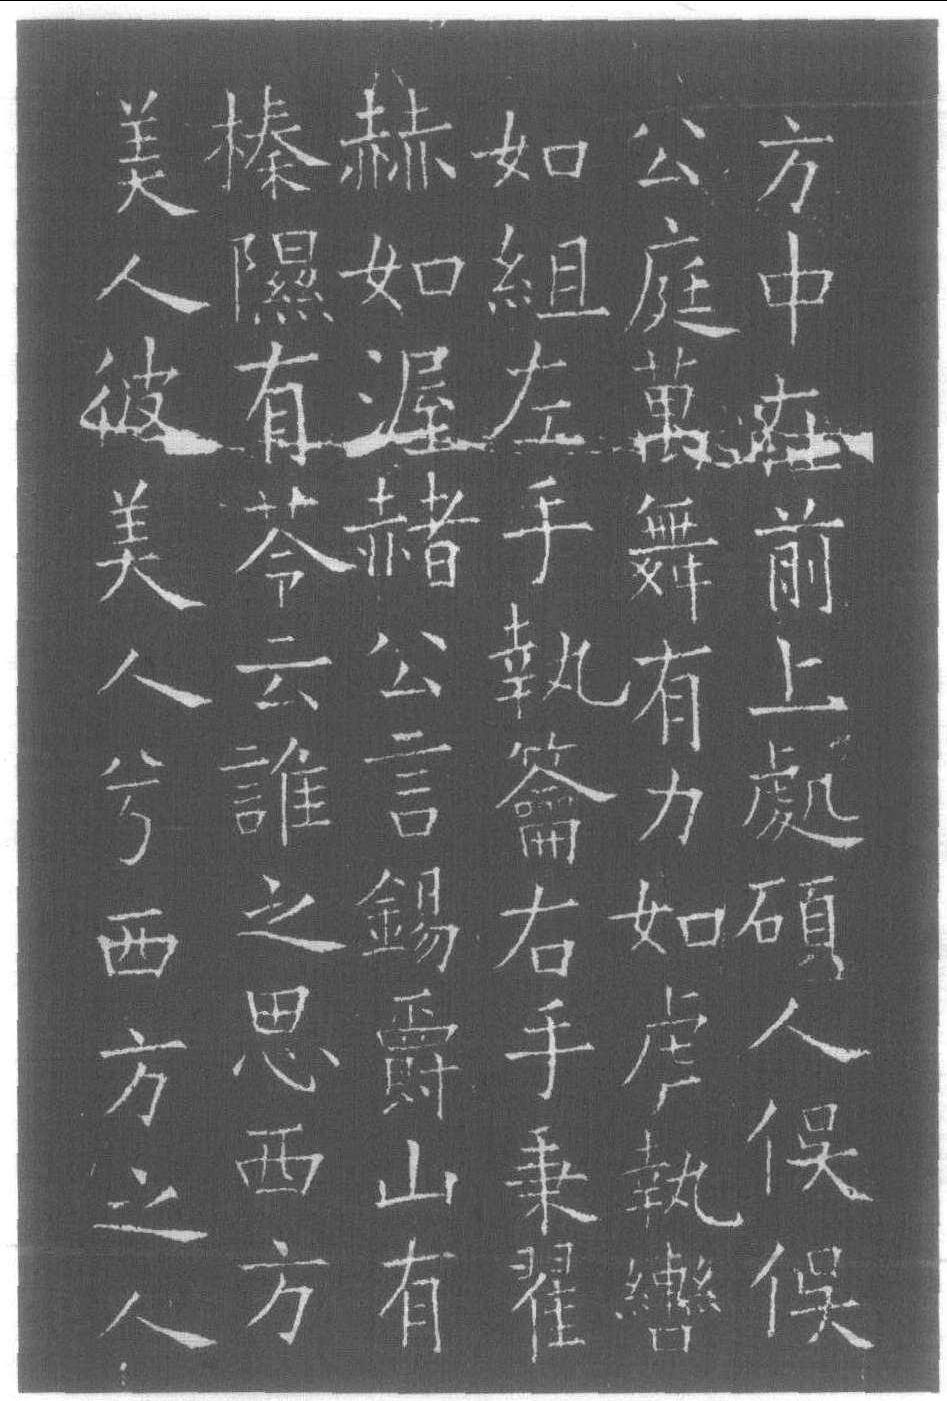 方中在前上處碩人俁俁
公庭萬舞有力如虎執轡
如組左手執籥右手秉翟
赫如渥赭公言錫爵山有
榛隰有苓云誰之思西方
美人彼美人兮西方之人